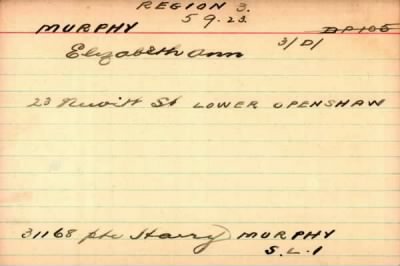 REGION 3.
5 9. 23.
MURPHY DP105
Elizabeth Ann 3/D/
23 St LOWER OPENSHAW
31168 pte Harry MURPHY
S.L.I